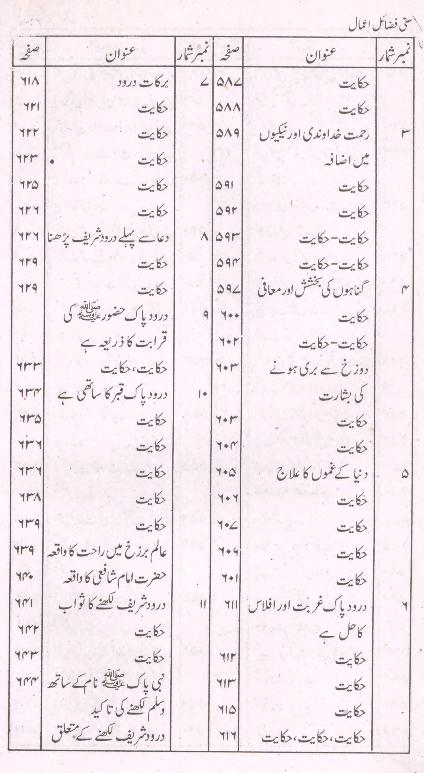 سنی فضائل اعمال
نمبر شمار عنوان صفحہ
حکایت ۵۸۷
حکایت ۵۸۸
۳ رحمت خداوندی اور نیکیوں ۵۸۹
میں اضافہ
حکایت ۵۹۱
حکایت ۵۹۲
حکایت-حکایت ۵۹۳
حکایت-حکایت ۵۹۴
۴ گناہوں کی بخشش اور معافی ۵۹۷
حکایت ۶۰۰
حکایت-حکایت ۶۰۲
دوزخ سے بری ہونے ۶۰۳
کی بشارت
حکایت ۶۰۳
حکایت ۶۰۴
۵ دنیا کے غموں کا علاج ۶۰۵
حکایت ۶۰۶
حکایت ۶۰۷
حکایت ۶۰۹
حکایت ۶۰۱
۶ درود پاک غربت اور افلاس ۶۱۱
کا حل ہے
حکایت ۶۱۲
حکایت ۶۱۳
حکایت ۶۱۵
حکایت، حکایت، حکایت ۶۱۶
نمبر شمار عنوان صفحہ
۷ برکات درود ۶۱۸
حکایت ۶۲۱
حکایت ۶۲۲
حکایت ۶۲۳
حکایت ۶۲۵
حکایت ۶۲۶
۸ دعا سے پہلے درود شریف پڑھنا ۶۲۶
حکایت ۶۲۹
حکایت ۶۲۹
۹ درود پاک حضور ﷺ کی
قرابت کا ذریعہ ہے
حکایت، حکایت ۶۳۳
۱۰ درود پاک قبر کا ساتھی ہے ۶۳۴
حکایت ۶۳۵
حکایت ۶۳۶
حکایت ۶۳۶
حکایت ۶۳۸
حکایت ۶۳۹
عالم برزخ میں راحت کا واقعہ ۶۳۹
حضرت امام شافعی کا واقعہ ۶۴۰
۱۱ درود شریف لکھنے کا ثواب ۶۴۱
حکایت ۶۴۲
حکایت ۶۴۳
نبی پاک ﷺ نام کے ساتھ ۶۴۴
وسلم لکھنے کی تاکید
درود شریف لکھنے کے متعلق